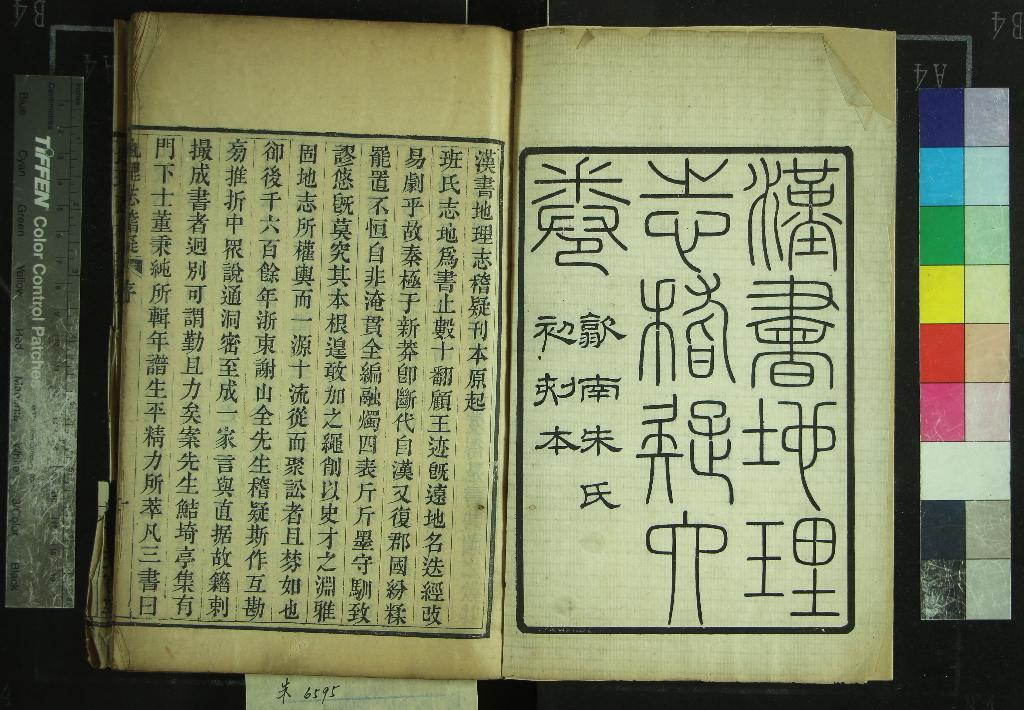 漢書地理
志稽疑六
卷
歙南朱氏
初刻本
漢書地理志稽疑刊本原起
班氏志地爲書止數十翻顧王迹旣遠地名迭經攺
易劇乎故秦極于新莽卽斷代自漢又復郡國紛糅
罷置不恒自非淹貫全編融燭四表斤斤墨守馴致
謬悠旣莫究其本根遑敢加之繩削以史才之淵雅
固地志所權輿而一源十流從而聚訟者且棼如也
卻後千六百餘年浙東謝山全先生稽疑斯作互勘
旁推折中眾說通洞密至成一家言與直据故籍剌
撮成書者迥別可謂勤且力矣案先生鮚埼亭集有
門下士董秉純所輯年譜生平精力所萃凡三書曰
序
朱 6595
TIFFEN Color Control Patches
Blue
Cyan
Green
Yellow
Red
Magenta
White
3/Color
Black
Centimetres
A4
A4
B4
B4